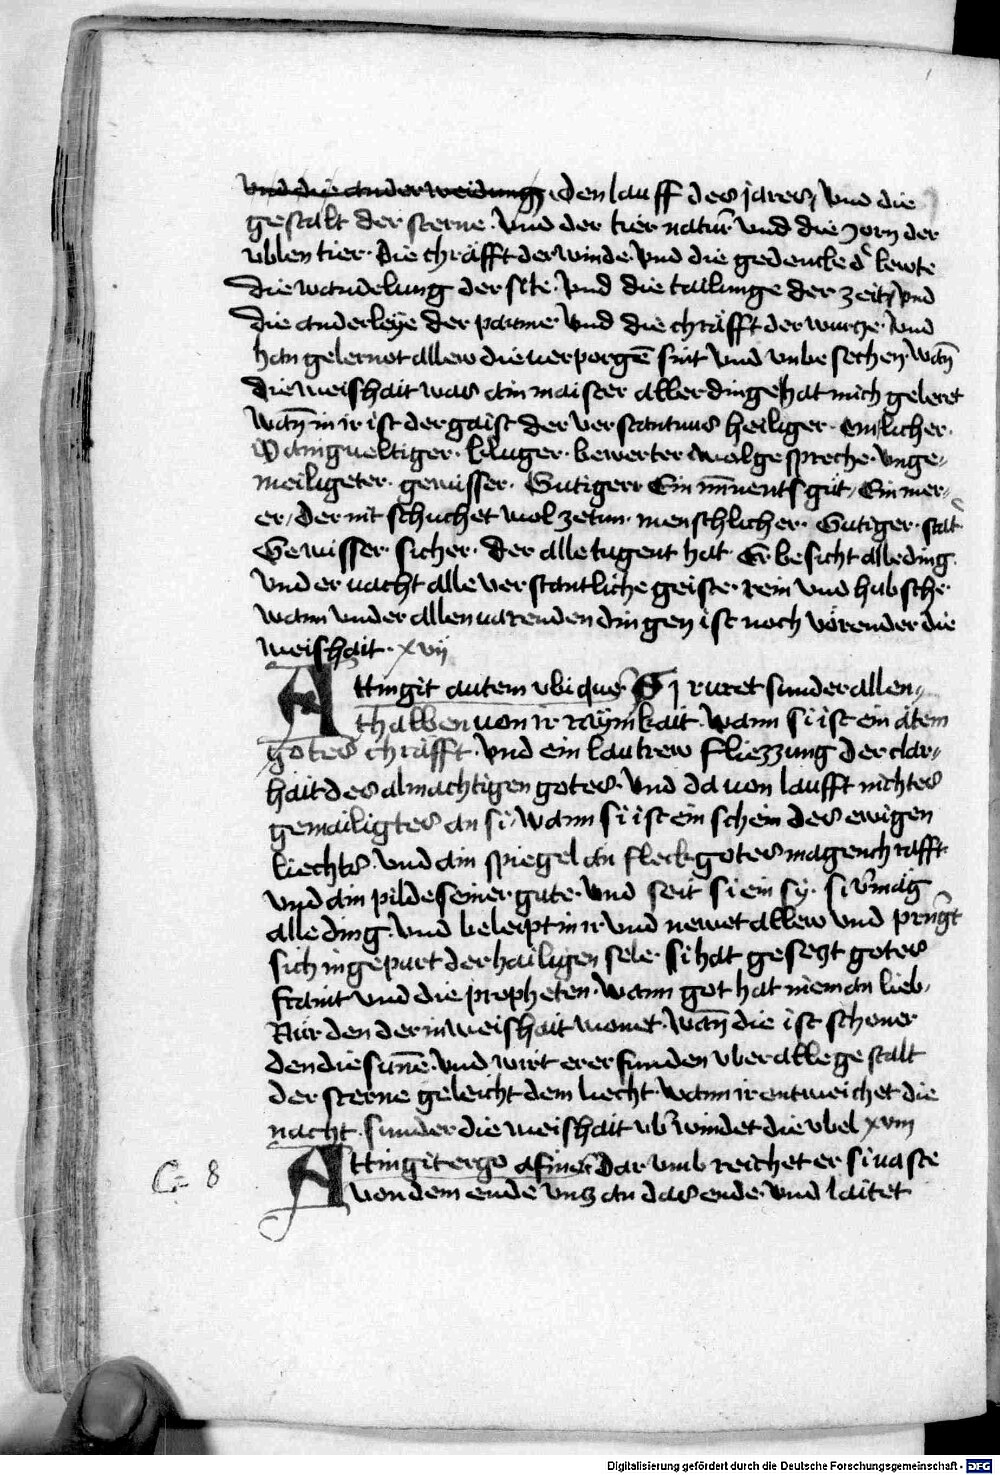 und die anderweidung den lauff des jares / Vnd die
gestalt der sterne. Vnd der tier natur̄ Vnd die zorn der
vblen tier. Die chräfft der winde. Vnd die gedencke d' lewte
Die wandelung der site. Vnd die tailunge der zeit / Vnd
die anderleye der paume. Vnd die chräfft der wurtze. Vnd
han gelernot allew die uerporgē sint Vnd vnbesechen. Wan̄
die weishait was ain maister aller dinge hat mich geleret
Wan̄ in ir ist der gaist der verstantnus heiliger. ainlicher.
Manigueltiger. kluger. bewerter wolgespreche. vnge-
meiligeter. gewisser. Gutigerr Ein minnents gut / Ein mer-
er / der nit schuchet wol zetun. menschlicher. Gutiger. stät
Gewisser. sicher. der alle tugent hat. Er besicht alle ding.
Vnd er uacht alle verstantliche geiste. rein Vnd hubsche.
wann vnder allen varenden dingen ist noch vörender die
weishait. xvij
Attingit autem vbique Sj ruret sunder allen-
thalben uon ir raynikait. wann si ist ein ätem
gotes chräfft. Vnd ein lautrew fliezzung der clar-
hait des almachtigen gotes. Vnd da uon laufft nichtes
gemailigtes an si / Wann si ist ein schein des ewigen
liechts. Vnd ain spiegel an fleck gotes magenchrafft.
Vnd ain pilde seiner gute. Vnd seit si ein sy. si v'mäg
alle ding. Vnd beleipt in ir Vnd newet allew Vnd pringt
sich in gepurt der hailigen sele. si hat gesetzt gotes
fraint Vnd die propheten. Wann got hat nieman lieb.
Nür den der in weishait wonet. Wan̄ die ist schoner
den die sunne. Vnd wirt erer funden vber alle gestalt
der sterne geleicht dem liecht. Wann ir entweichet die
nacht. sunder die weishait vb'windet die vbel xviij
Attingit ergo a fine Dar vmb reichet er si uaste
von dem ende vntz an das ende. Vnd laitet
C. 8
Digitalisierung gefördert durch die Deutsche Forschungsgemeinschaft - DFG